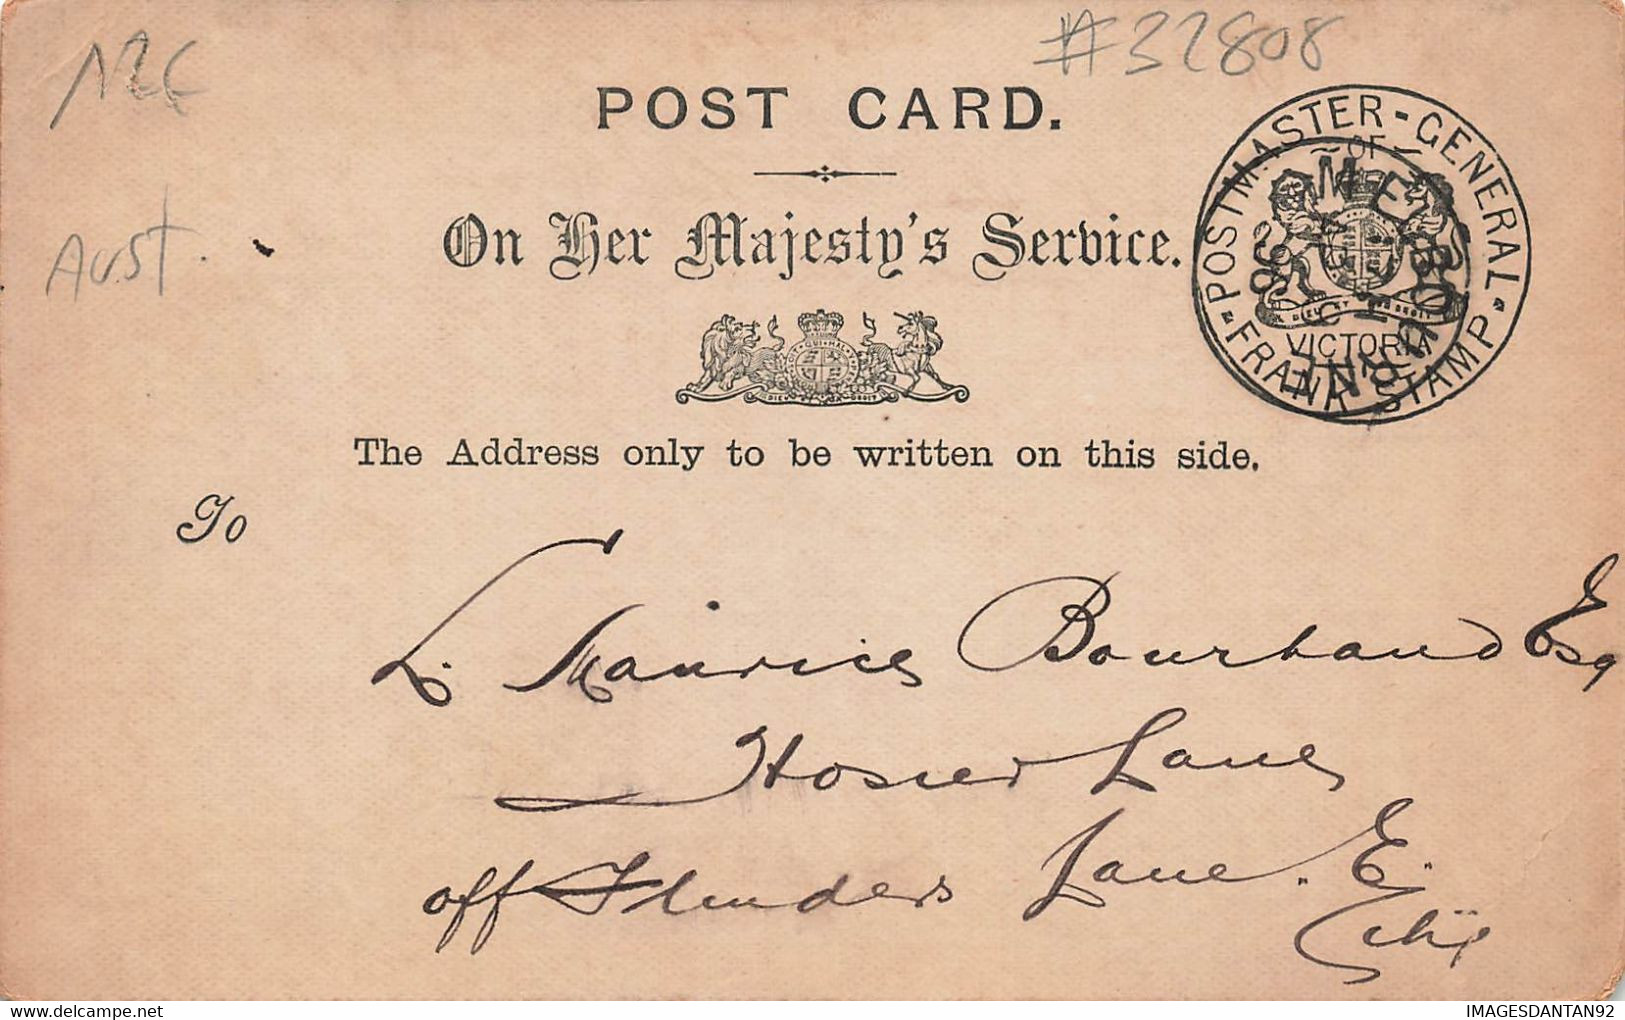 12€
#32808
POST CARD.
POSTMASTER-GENERAL
OF
VICTORIA
FRANK STAMP
MELBOURNE
98
Aust.
On Her Majesty's Service.
DIEU ET MON DROIT
The Address only to be written on this side.
To
L. Maurice Bourhaud Esq
Hosier Lane
off Flinders Lane. E.
City
IMAGESDANTAN92